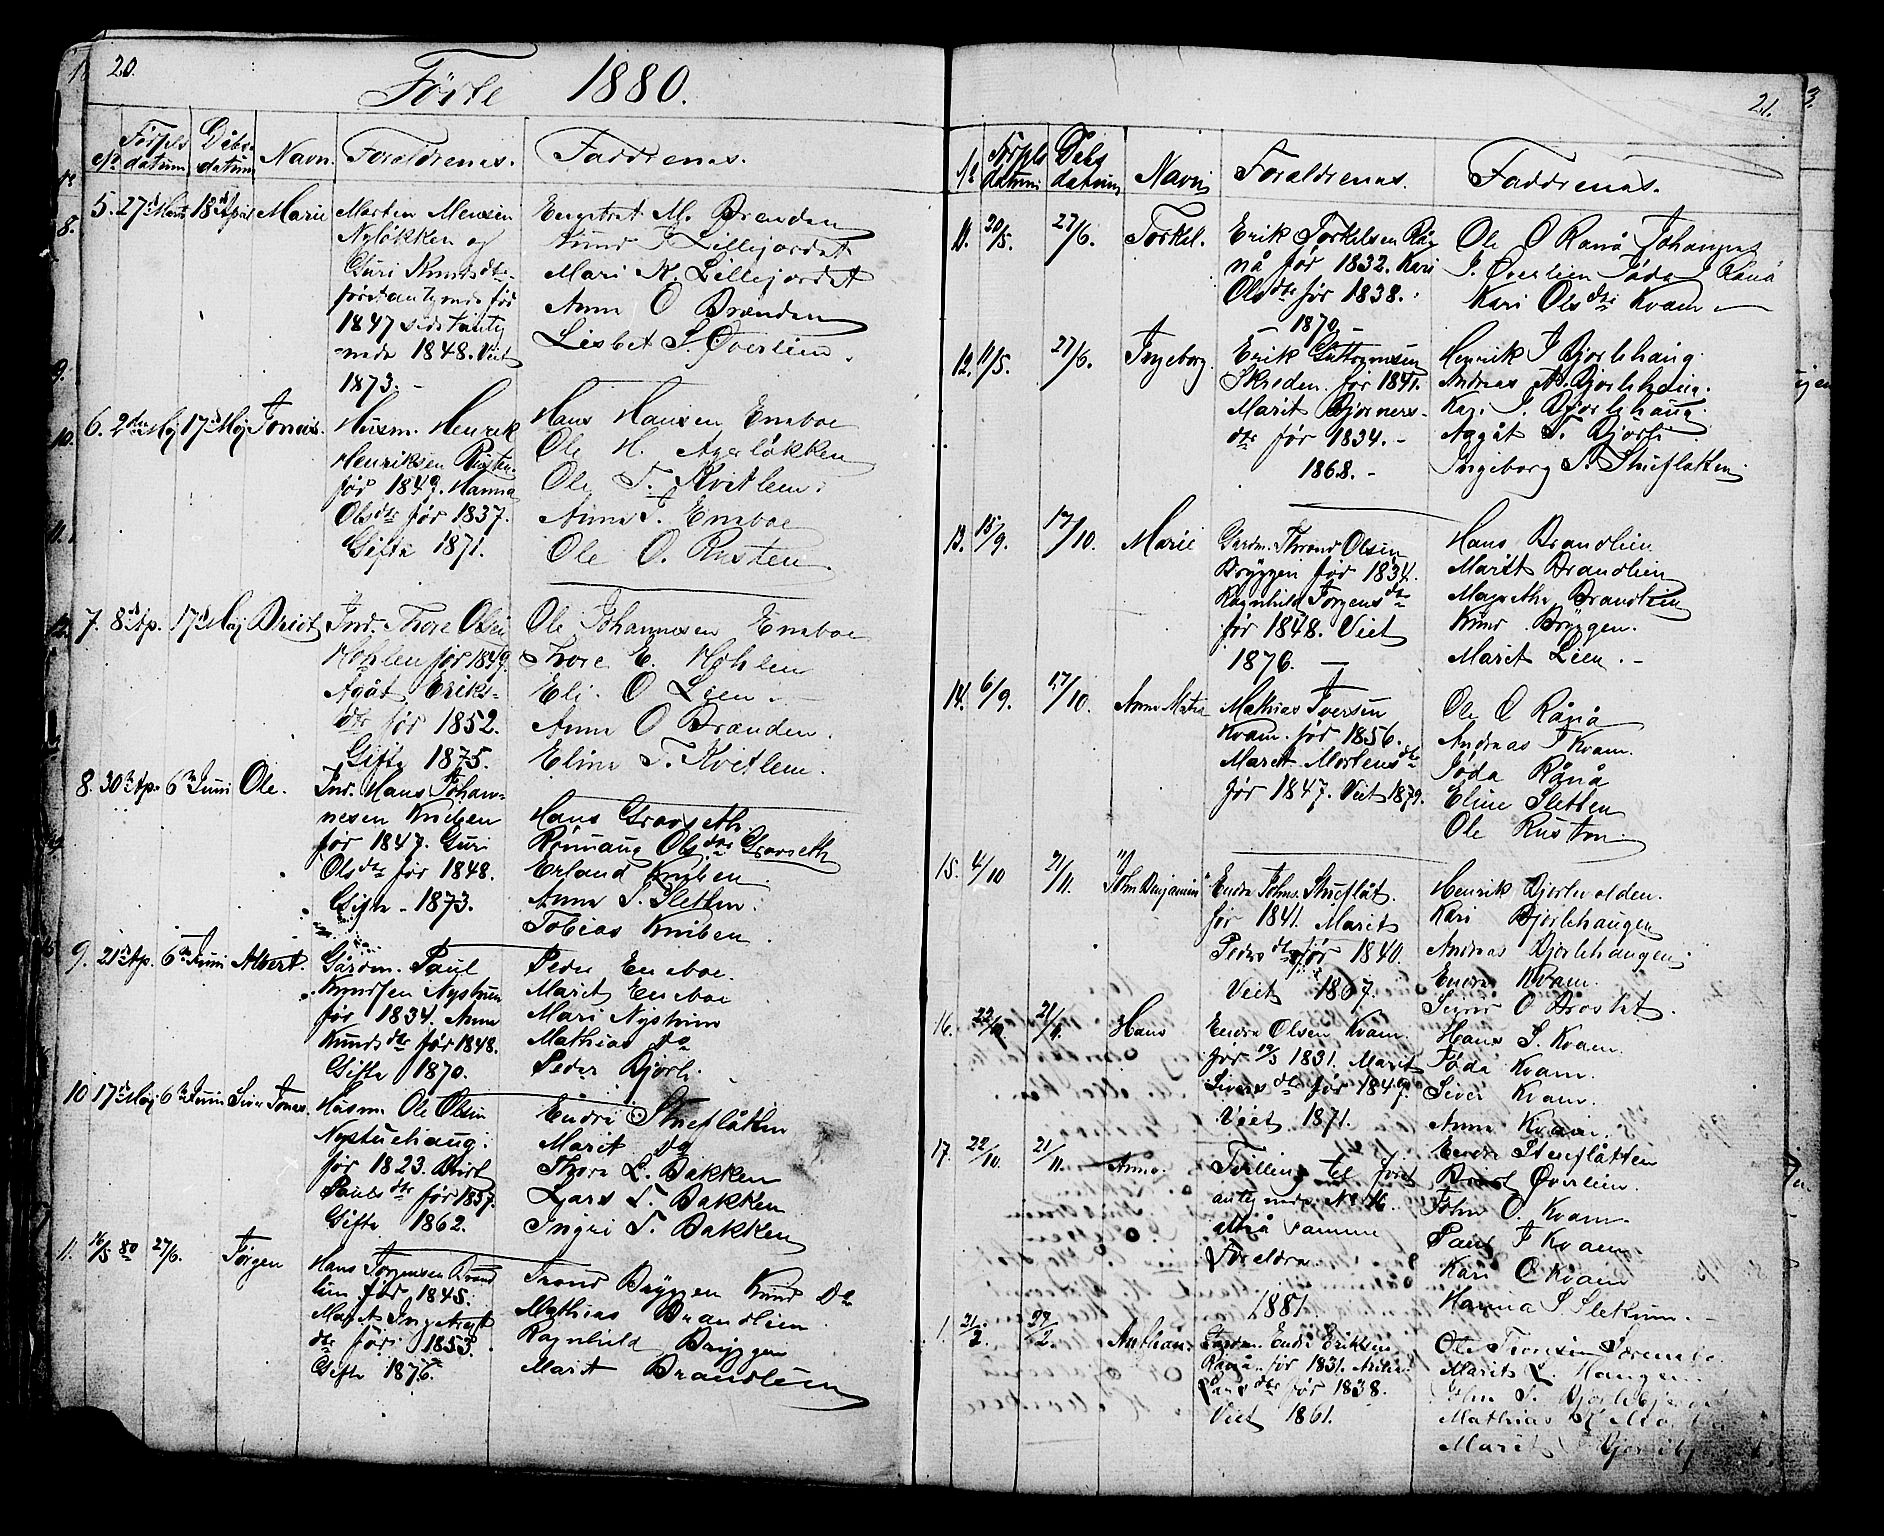 20.
Förte 1880.
No Förpls datum Dåbs datum Navn. Foraldrenes. Faddrenes.
5. 27d 18d April Marie
Morten Monsen
Nylökken og
Guri Knuds dtr
förstantymde för
1847 sidstanty
mde 1848. Viet
1873. -
Engebret M. Brænden
Knud T Lillejordet
Mari K. Lillejordet
Anne O Brænden
Lisbet S. Øverlien.
6. 2den Maj 17d Maj
Husm. Henrik
Henriksen Rusten
för 1849. Hanna
Olsdtr för 1837.
Gifte 1871.
Hans Hansen Eneboe
Ole H. Agerlökken
Ole T. Kvitlem.
Anne T. Eneboe
Ole O. Rusten
7. 8d Ap. 17d Maj Beret
Ind. Thore Olsen
Hohlen för 1849.
Agåt Eriks-
dtr för 1852.
Gifte 1875.
Ole Johannesen Eneboe
Thore E. Hohlen
Eli O Lien
Anne O Brænden.
Eline T. Kvitlem.
8. 30te Ap. 6te Juni Ole.
Ind. Hans Johan-
nesen Kniben
för 1847. Guri
Olsdtr för 1848.
Gifte 1873.
Hans Gravseth
Rönnaug Olsdtr Gravseth
Erland Kniben
Anne S. Sletten.
Tobias Kniben
9. 21de Ap. 6te Juni Albert.
Gårdm. Paul
Knudsen Nystuen
för 1834. Anne
Knudsdtr för 1848.
Gifte 1870.
Peder Eneboe.
Marit Eneboe
Mari Nystuen
Mathias do
Peder Bjorli.
10 17de Maj 6te Juni
Husm. Ole Olsen
Nystuehaug.
för 1823. Beret
Paulsdtr för 1837.
Gifte 1862.
Endre Stueflåten
Marit do
Thore L. Bakken
Lars T. Bakken
Ingri T. Bakken
11. 16/5 80 27/6. Jörgen
Hans Jörgensen Brand
lien för 1845.
Marit Ingebregt
dtr för 1853.
Gifte 1876.
Trond Bryggen Knud do
Mathias Brandlien
Ragnhild Bryggen
Marit Brandlien
21.
No Förpls datum Dåbs datum Navn Foraldrenes. Faddrenes.
11. 20/5. 27/6. Torkel.
Erik Torkelsen Rå
nå för 1832. Kari
Olsdtr för 1838.
1870
Ole O Rånå Johannes
J. Øverlien Jöda J Rånå
Kari Olsdtr Kvam
12. 11/5. 27/6. Ingeborg.
Erik Guttormsen
Skriden för 1841.
Marit Bjorners-
dtr för 1834. -
1868. -
Henrik J Bjorlihaug
Andreas A. Bjorliheim.
Kari J. Bjorlihaug
Aggåt T. Bjorli
Ingeborg P. Stueflotten.
13. 15/9. 17/10. Marie
Gardm. Thrond Olsen
Bryggen för 1834.
Ragnhild Jörgensdtr
för 1848. Viet
1876. -
Hans Brandlien
Marit Brandlien
Magrethe Brandlien
Knud Bryggen.
Marit Lien. -
14. 6/9. 17/10. Anne Matea
Mathias Iversen
Kvam. för 1856.
Marit Mortensdtr
för 1847. Viet 1879.
Ole O Rånå
Andreas J Kvam.
Jöda Rånå
Eline Sletten
Ole Rusten.
15. 4/10 21/11. John Benjamin
Endre Johns. Stueflåt.
för 1841. Marit
Pedersdtr för 1840.
Viet 1867.
Henrik Bjorlivolden.
Kari Bjorlihaugen
Andreas Bjorlihaugen
Endre Kvam.
16. 21/11. Hans
Endre Olsen Kvam
för 19/5 1831. Marit
Siversdtr för 1849.
Viet 1871.
Hans S. Kvam.
Jöda Kvam.
Siver Kvam.
Anne Kvam.
17. 22/10. 21/11. Anne.
Tvilling til först
antymde No 16.
altså samme
Foreldre
Endre Stueflåtten
Beret Øverlien.
John O. Kvam.
Paul J Kvam
Kari O Kvam
Hanna S Sletten. -
1881
1. 21/2. 27/2.
Gardm. Endre Eriksen
Rånå för 1831.
dtr för 1838.
Viet 1861.
Marit L. Haugen
Mathias
Marit